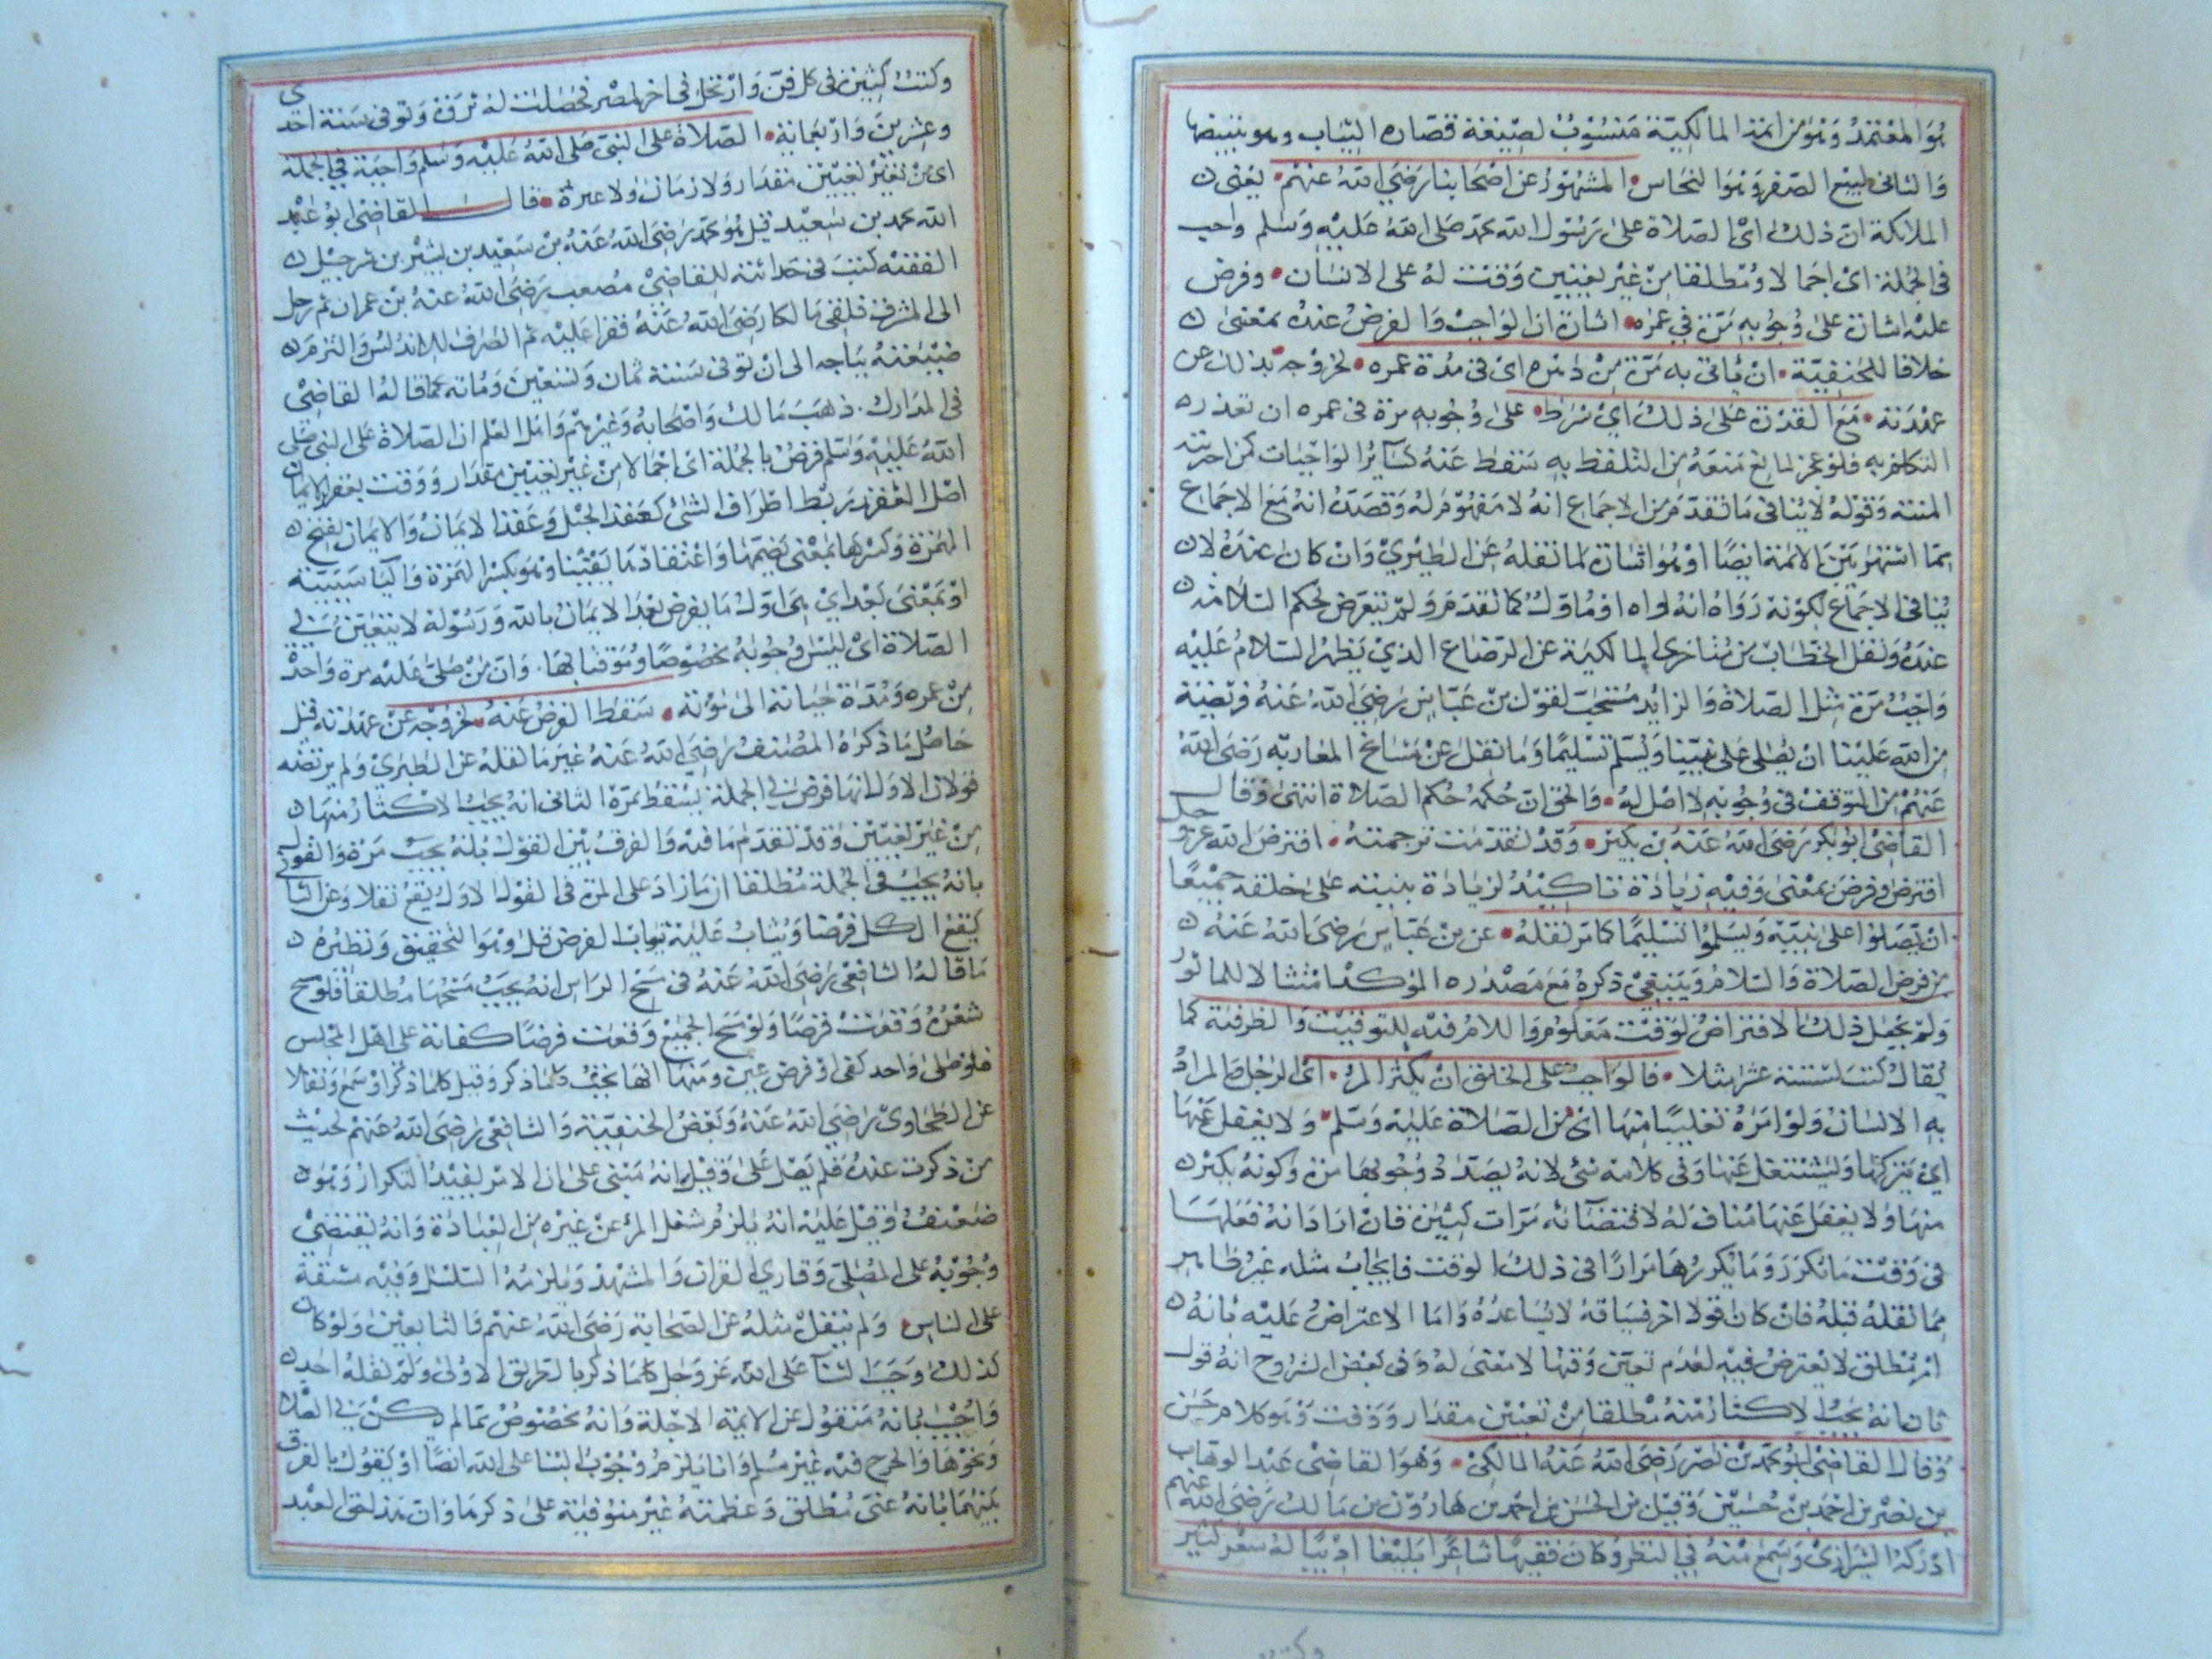 هو المعتمد وهو من ائمة المالكية منسوب لصيغة قصاره الثياب وهو تبييضها
والثاني طبيع الصفر وهو النحاس المشهور عن اصحابنا رضي الله عنهم يعني
الملائكة ان ذلك اي الصلاة على رسول الله محمد صلى الله عليه وسلم واجب
في الجملة اي اجمالا ومطلقا من غير تعيين وقت له على الانسان وفرض
عليه اشارة على وجوبه مرة في عمره اشارة ان الواجب والفرض عنده بمعنى
خلافا للحنفية ان ياتي به مرة من دهره اي في مدة عمره لخروجه بذلك عن
عهدته مع القدرة على ذلك اي شرط على وجوبه مرة في عمره ان تعذره
التكلم به فلو عجز لمانع منعه من التلفظ به سقط عنه كسائر الواجبات كمن اخر
المنية وقوله لا ينافي ما تقدم من الاجماع انه لا مفهوم له وقصده انه مع الاجماع
مما اشتهر بين الائمة ايضا او هو اشارة لما نقله عن الطبري وان كان عنده لا
ينافي الاجماع لكونه رواه انه اوله او ماول كما تقدم ولم يتعرض لحكم السلام
عنده ونقل الحطاب من متاخري المالكية عن الرصاع الذي يظهر السلام عليه
واجب مرة مثل الصلاة والزائد مستحب لقول بن عباس رضي الله عنه فريضة
من الله علينا ان يصلى على نبينا ويسلم تسليما وما نقل عن مشايخ المغاربه رضي الله
عنهم من التوقف في وجوبه لا اصل له والحق ان حكمه حكم الصلاة انتهى وقال
القاضي ابو بكر رضي الله عنه بن بكير وقد تقدمت ترجمته افترض الله عز وجل
افترض وفرض بمعنى وفيه زيادة تاكيد لزيادة بنيته على خلقه جميعا
ان يصلوا على نبيه ويسلموا تسليما كما مر نقله عن بن عباس رضي الله عنه
من فرض الصلاة والسلام وينبغي ذكره مع مصدره المؤكد امتثالا للماثور
ولم يجعل ذلك الافتراض لوقت معلوم واللام فيه للتوقيت والظرفية كما
يقال كتب لستة عشر مثلا فالواجب على الخلق ان يكثر المرء اي الرجل والمراد
به الانسان ولو امرأة تغليبا منها اي من الصلاة عليه وسلم ولا يغفل عنها
اي يتركها ويشتغل عنها وفي كلامه شئ لانه يصدد وجوبها مرة وكونه يكثر
منها ولا يغفل عنها مناف له لاقتضائه مرات كثيرة فان اراد انه فعلها
في وقت ما تكرر وما يكررها مرارا في ذلك الوقت فايجاب مثله غير ظاهر
مما نقله قبله فان كان قولا اخر فسياقه لا يساعده واما الاعتراض عليه بانه
امر مطلق لا يعترض فيه لعدم تعين وقتها لا معنى له وفي بعض الشروح انه قول
ثان انه يجب الاكثار منه مطلقا من تعيين مقدار ووقت وهو كلام حسن
وقال القاضي ابو محمد بن نصر رضي الله عنه المالكي وهو القاضي عبد الوهاب
بن نصر بن احمد بن حسين وقيل بن الحسن بن احمد بن هارون بن مالك رضي الله عنهم
ادركه الشيرازي وسمع منه في النظر وكان فقيها شاعرا بليغا اديبا له شعر كثير
وكتب كثيرة في كل فن وارتحل في اخره لمصر فحصلت له ثروة وتوفى سنة احدى
وعشرين واربعماية الصلاة على النبي صلى الله عليه وسلم واجبة في الجملة
اي من غير تعيين مقدار ولا زمان ولا عبرة قال القاضي ابو عبد
الله محمد بن سعيد قيل هو محمد رضي الله عنه بن سعيد بن بشير بن شرحبيل
الفقيه كتب في حداثته للقاضي مصعب رضي الله عنه بن عمران ثم رحل
الى المشرق فلقى مالكا رضي الله عنه فقرا عليه ثم انصرف للاندلس والتزم
ضيعته بباجه الى ان توفى سنة ثمان وتسعين ومائه كما قاله القاضي
في المدارك ذهب مالك واصحابه وغيرهم واهل العلم ان الصلاة على النبي صلى
الله عليه وسلم فرض بالجملة اي اجمالا من غير تعيين مقدار ووقت بعقد الايمان
اصل العقد ربط اطراف الشئ كعقد الحبل وعقد الايمان والايمان بفتح
الهمزة وكسرها بمعنى تضيمها واعتقاد ما يقينا وهو بكسر الهمزة والباء سببية
او بمعنى بعد اي هي اول ما يفرض بعد الايمان بالله ورسوله لا يتعين في
الصلاة اي ليس وجوبه مخصوصا وموقتا بها وان من صلى عليه مرة واحدة
من عمره ومدة حياته الى موته سقط الفرض عنه لخروجه عن عهدته قيل
حاصل ما ذكره المصنف رضي الله عنه غير ما نقله عن الطبري ولم يرتضه
قولان الاول انها فرض في الجملة يسقط بمرة الثاني انه يجب الاكثار منها
من غير تعيين وقد تقدم ما فيه والفرق بين القول بانه يجب مرة والقول
بانه يجب في الجملة مطلقا ان ما زاد على المرة في القول الاول يقع نفلا وعن الثاني
يقع الكل فرضا ويثاب عليه ثواب الفرض قيل وهو التحقيق ونظيره
ما قاله الشافعي رضي الله عنه في مسح الراس انه يجب مسحها مطلقا فلو مسح
شعره وقعت فرضا ولو مسح الجميع وقعت فرضا كفاية على اهل المجلس
فلو صلى واحد كفى او فرض عين ومنها انها يجب كلما ذكر وقيل كلما ذكر او سمع ونقلا
عن الطحاوي رضي الله عنه وبعض الحنفية والشافعي رضي الله عنهم لحديث
من ذكرت عنده فلم يصل على وقيل انه مبنى على ان الامر يفيد التكرار وهو
ضعيف وقيل عليه انه يلزم شغل المرء عن غيره من العبادة وانه يقتضي
وجوبه على المصلي وقاري القران والمشهد ويلزمه التسلسل وفيه مشقة
على الناس ولم ينقل مثله عن الصحابة رضي الله عنهم والتابعين ولو كان
كذلك وجب الثنا على الله عز وجل كلما ذكر بالطريق الاولى ولم نقله احد
واجيب بانه منقول عن الايمة الاجلة وانه مخصوص بما لم يكن في الصلا
ونحوها والحرج فيه غير مسلم وانا يلزم وجوب الثنا على الله ايضا او يقول بالفرق
بينهما بانه غنى مطلق وعظمته غير متوقفة على ذكر ما وان هذا حق العبد